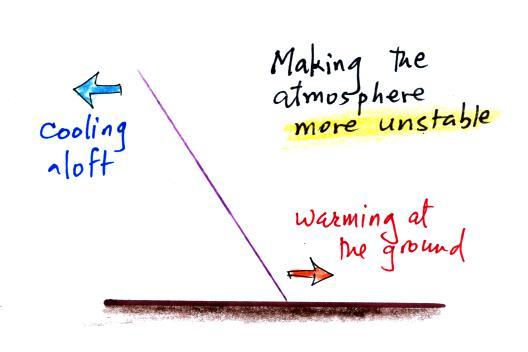 Making the
atmosphere
more unstable
cooling
aloft
warming at
the ground